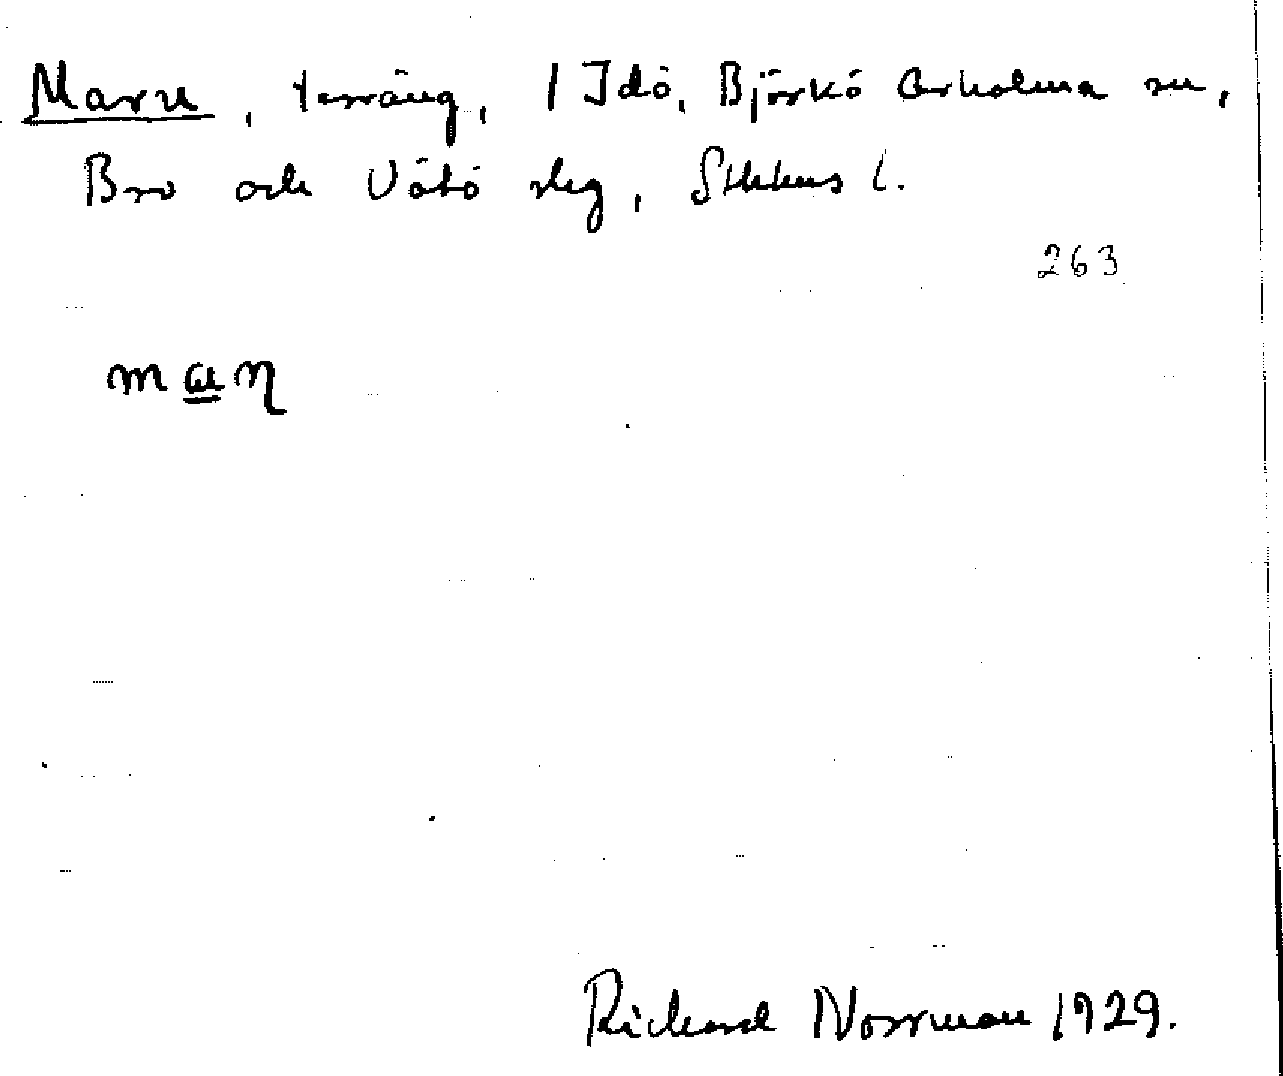 Marn, terräng, 1 Idö, Björkö Arholma sn,
Bro och Vätö slg, Sthlms l.
263
mɑɳ
Richard Norrman 1929.